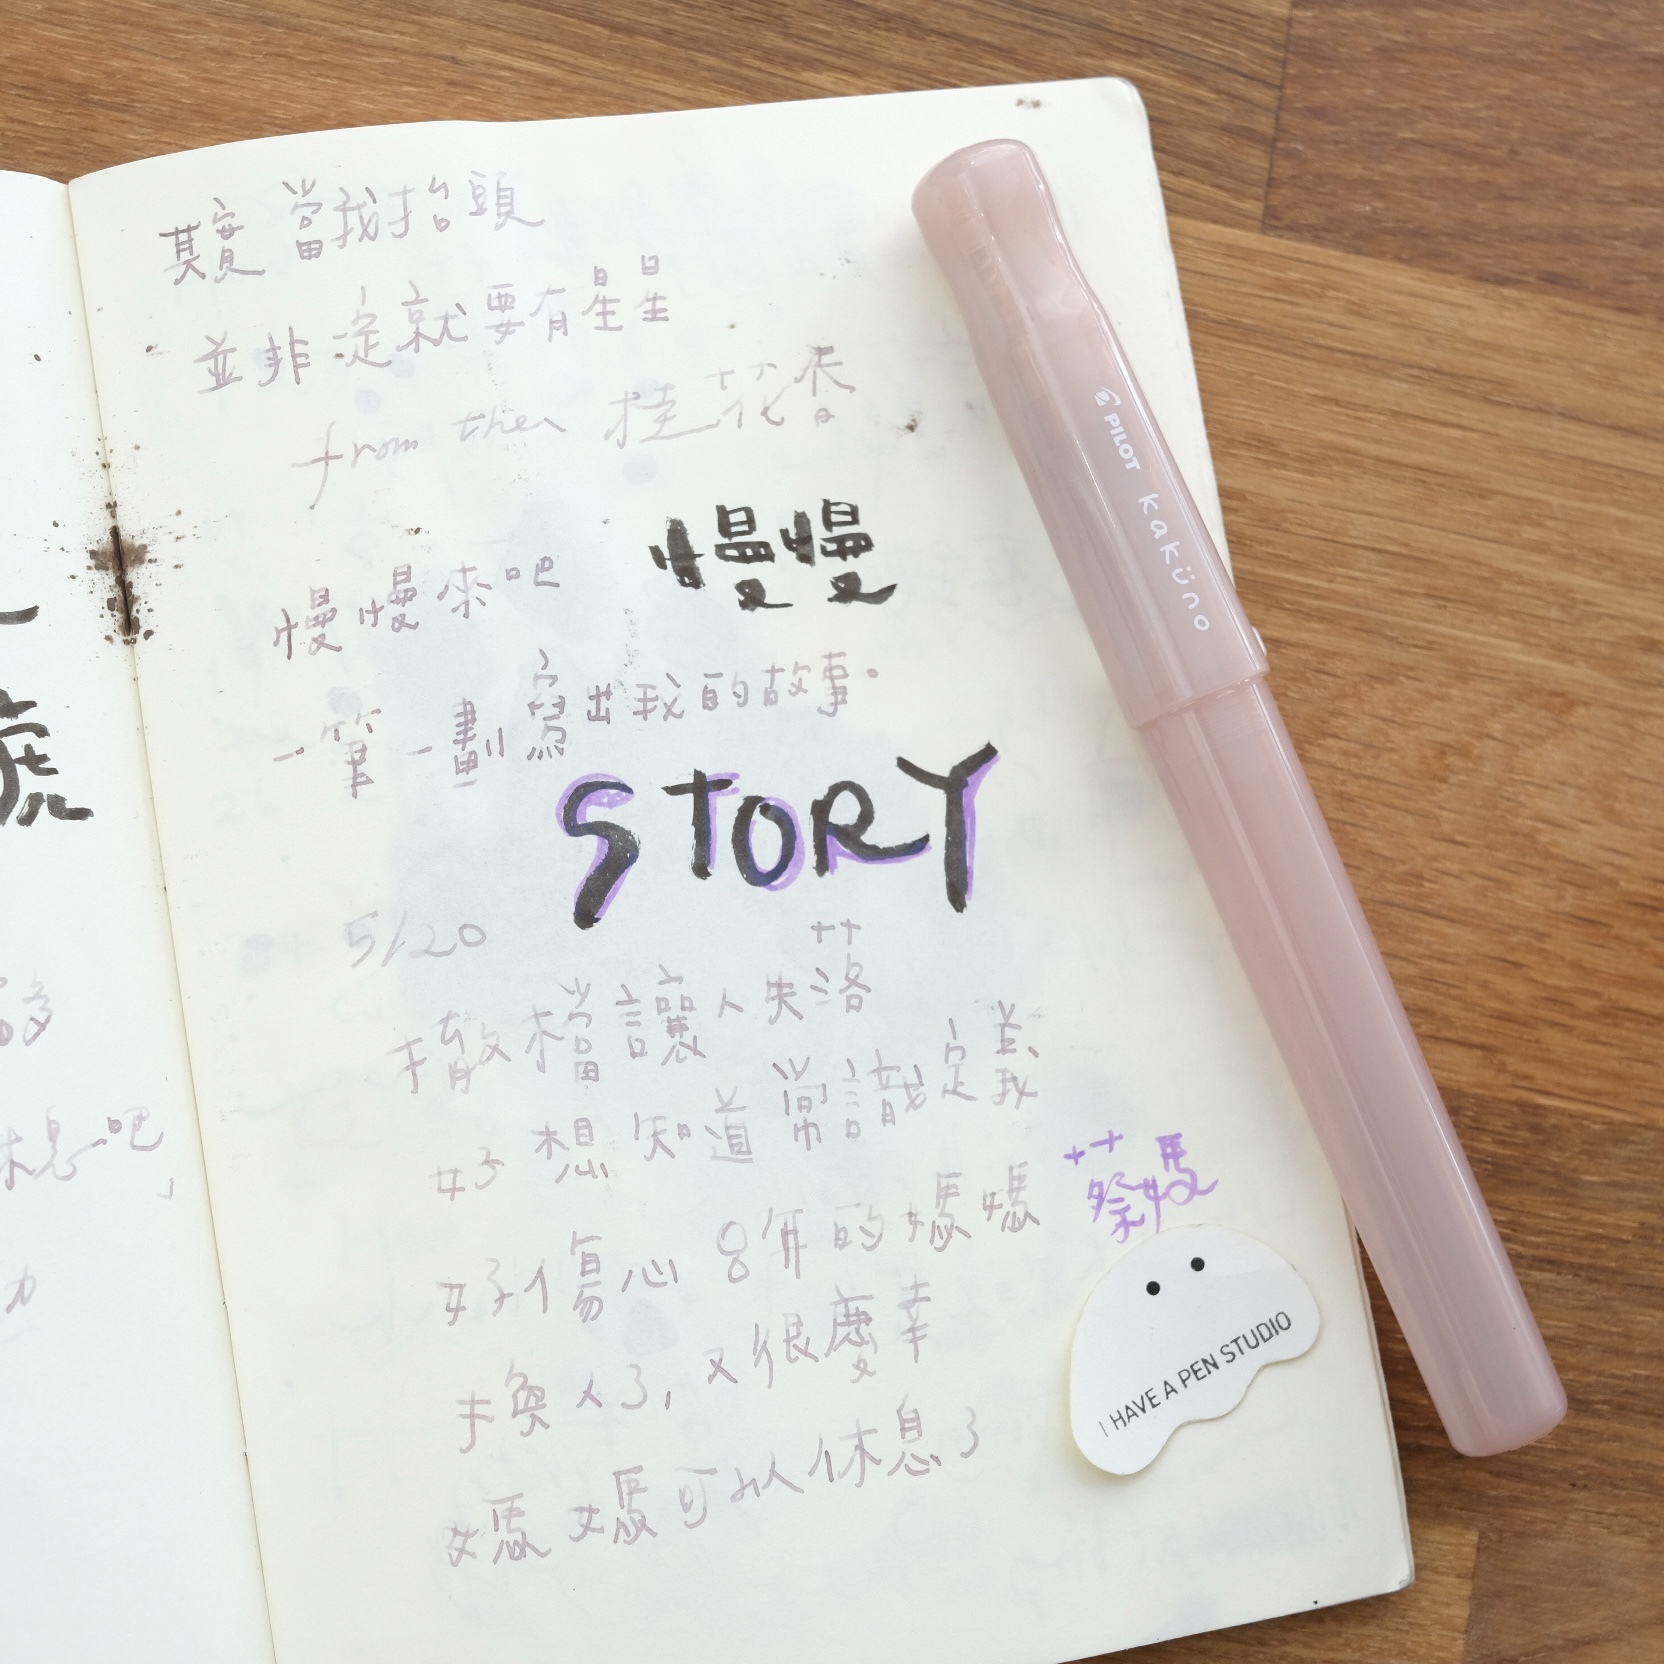 其實 當我抬頭
並非一定就要有星星
from the 桂花香
慢慢來吧
慢慢
一筆一劃寫出我的故事。
STORY
5/20
撤檔讓人失落
好想知道常識定義
好傷心 8年的媽媽
蔡媽
換人了,又很慶幸
媽媽可以休息了
PILOT kaküno
I HAVE A PEN STUDIO
休息吧